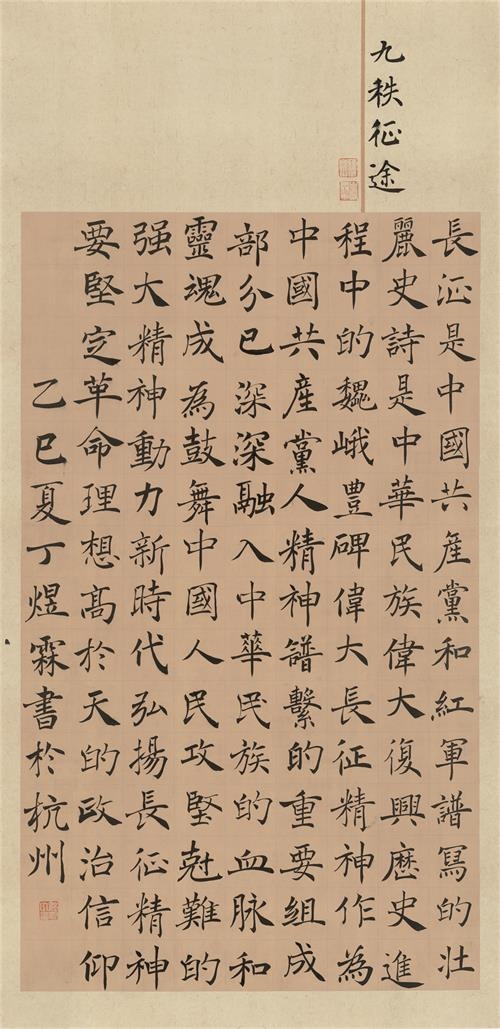 九秩征途
長征是中國共産黨和紅軍譜寫的壯
麗史詩是中華民族偉大復興歷史進
程中的魏峨豐碑偉大長征精神作為
中國共産黨人精神譜繫的重要組成
部分已深深融入中華民族的血脉和
靈魂成為鼓舞中國人民攻堅尅難的
强大精神動力新時代弘揚長征精神
要堅定革命理想髙於天的政治信仰
乙巳夏丁煜霖書於杭州